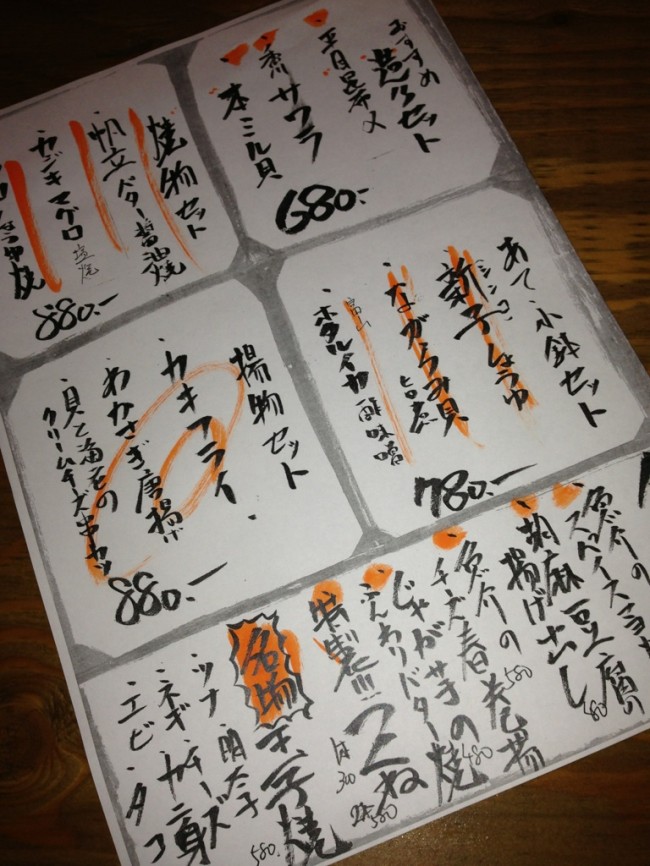 おすすめ
造りセット
・平目昆布〆
・香川サワラ
・本ミル貝
680.-
焼物セット
・帆立バター醤油焼
・カジキマグロ
塩焼
880.-
あて小鉢セット
・新子しょうゆ
シンコ
・ながらみ貝
旨煮
富山
・ホタルイカ酢味噌
780.-
揚物セット
・カキフライ
・わかさぎ唐揚げ
・貝と海老の
クリームチーズ串カツ
880.-
胡麻豆腐の
揚げ出し
480
チーズ春巻揚
580
じゃが芋の
ふんわりバター焼
480
特製!!! つくね
1本
300
2本
580
名物 玉子焼
580.
・ツナ・明太子
・ネギ・チーズ
・エビ・タコ